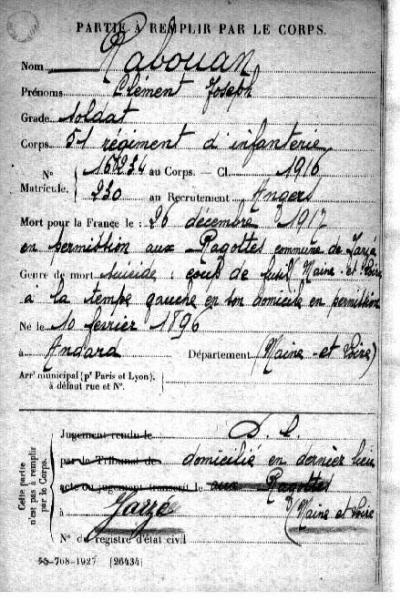 PARTIE À REMPLIR PAR LE CORPS.
Nom Rabouan
Prénoms Clément Joseph
Grade soldat
Corps 51 régiment d'infanterie
N° 16234 au Corps. — Cl. 1916
Matricule. 230 au Recrutement Angers
Mort pour la France le : 26 décembre 1917
en permission aux Ragottes commune de Jarzé
Genre de mort suicide : coup de fusil Maine-et-Loire
à la tempe gauche en son domicile en permission
Né le 10 février 1896
à Andard Département (Maine-et-Loire)
Arrt municipal (pr Paris et Lyon),
à défaut rue et N°.
Cette partie
n'est pas à remplir
par le Corps.
Jugement rendu le D. L.
par le Tribunal de domicilié en dernier lieu
acte ou jugement transcrit le aux Ragottes
à Jarzé (Maine et Loire
N° du registre d'état civil
-708-1927 [26434]